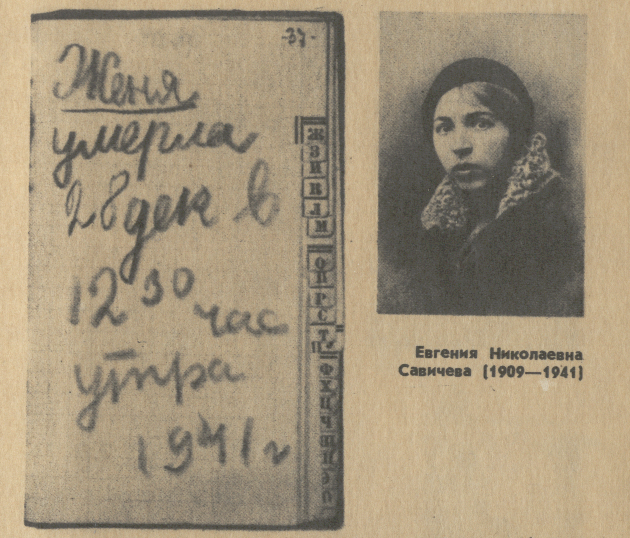 -37-
Женя
умерла
28 дек в
12 30 час
утра
1941 г
Ж
З
И
К
Л
М
О
П
Р
С
Т
Ф
Х
Ц
Ч
Ш
Евгения Николаевна
Савичева (1909—1941)